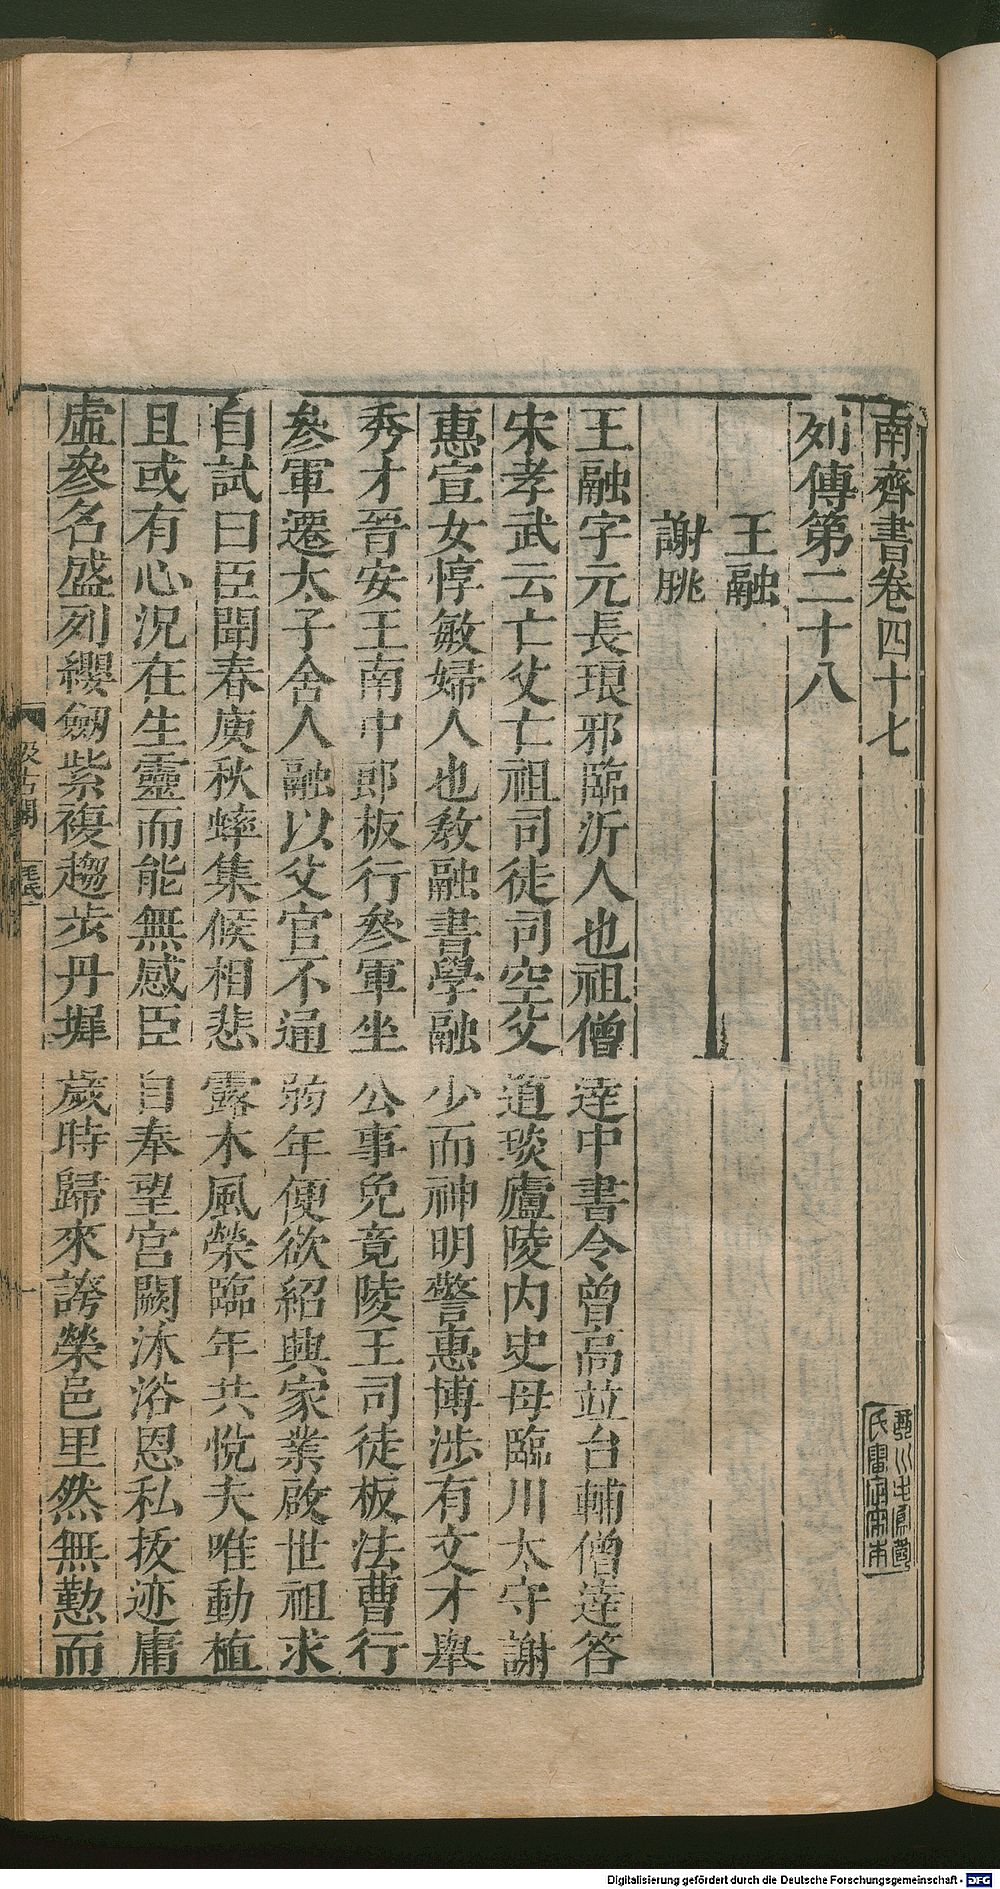 南齊書卷四十七
列傳第二十八
王融
謝朓
王融字元長琅邪臨沂人也祖僧達中書令曾高並台輔僧達答
宋孝武云亡父亡祖司徒司空父道琰廬陵内史母臨川太守謝
惠宣女惇敏婦人也敎融書學融少而神明警惠博涉有文才舉
秀才晉安王南中郎板行參軍坐公事免竟陵王司徒板法曹行
參軍遷太子舍人融以父官不通弱年便欲紹興家業啟世祖求
自試曰臣聞春庚秋蟀集候相悲露木風榮臨年共悅夫唯動植
且或有心況在生靈而能無感臣自奉望宮闕沐浴恩私拔迹庸
虛參名盛列纓劒紫複趨步丹墀歲時歸來誇榮邑里然無勤而
汲古閣
毛氏
一
Digitalisierung gefördert durch die Deutsche Forschungsgemeinschaft - DFG